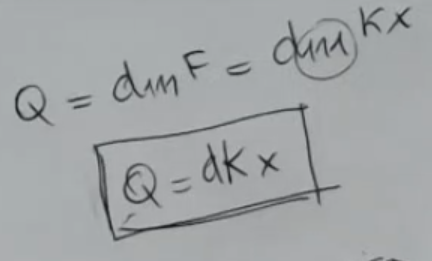 Q = d_{im} F = d_{im} Kx
Q = dKx